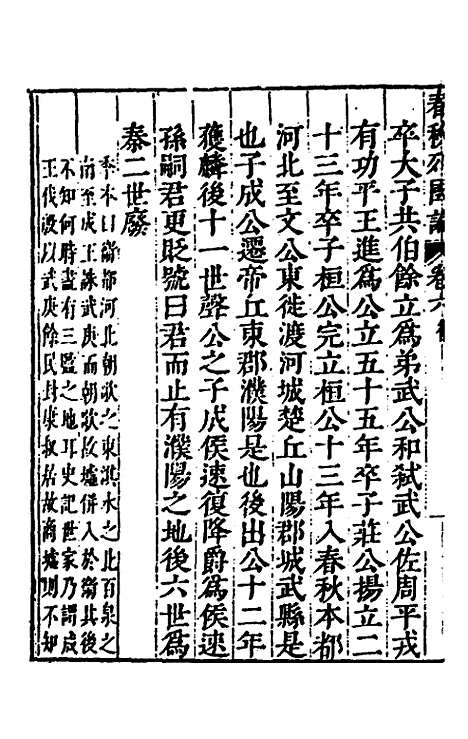 春秋列國論 卷六 衛
卒大子共伯餘立爲弟武公和弑武公佐周平戎
有功平王進爲公立五十五年卒子莊公揚立二
十三年卒子桓公完立桓公十三年入春秋本都
河北至文公東徙渡河城楚丘山陽郡城武縣是
也子成公遷帝丘東郡濮陽是也後出公十二年
獲麟後十一世聲公之子成侯速復降爵爲侯速
孫嗣君更貶號曰君而止有濮陽之地後六世爲
秦二世廢
季本曰衛都河北朝歌之東淇水之北百泉之
南至成王誅武庚而朝歌故墟併入於衛其後
不知何時盡有三監之地耳史記世家乃謂成
王伐殷以武庚餘民封康叔居故商墟則不知